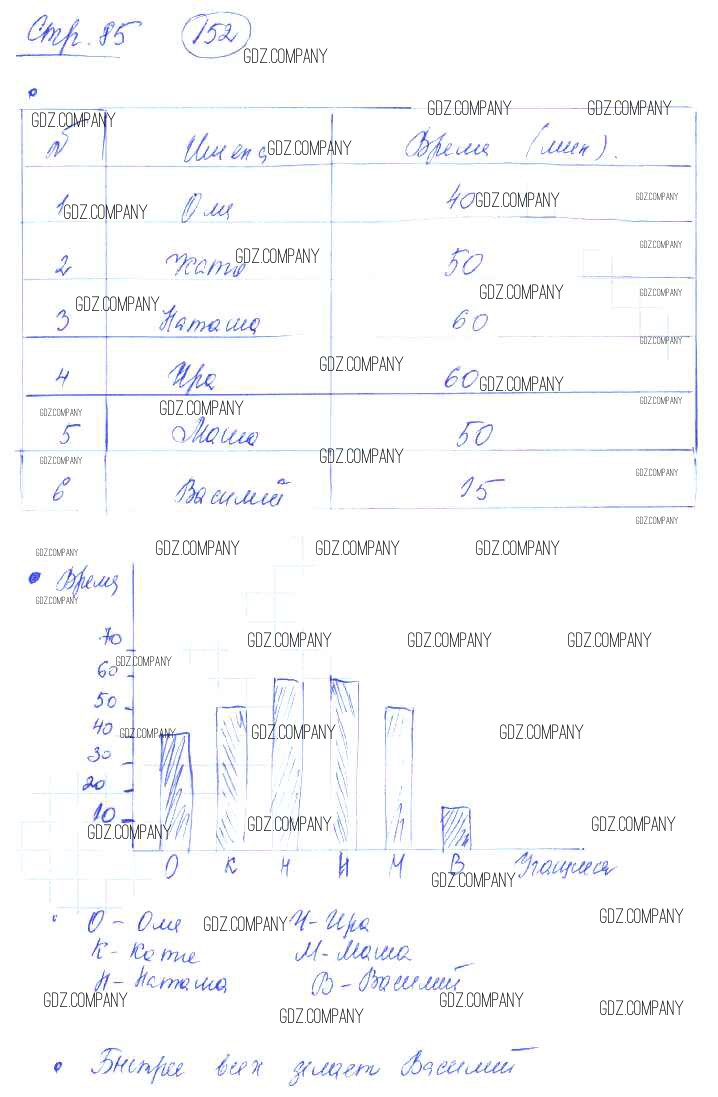 Стр. 85 152
GDZ.COMPANY
№ Имена Время (мин).
1 Оля 40
2 Катя 50
3 Наташа 60
4 Ира 60
5 Маша 50
6 Василий 15
Время
70
60
50
40
30
20
10
О К Н И М В Учащиеся
О - Оля И - Ира
К - Катя М - Маша
Н - Наташа В - Василий
Быстрее всех делает Василий